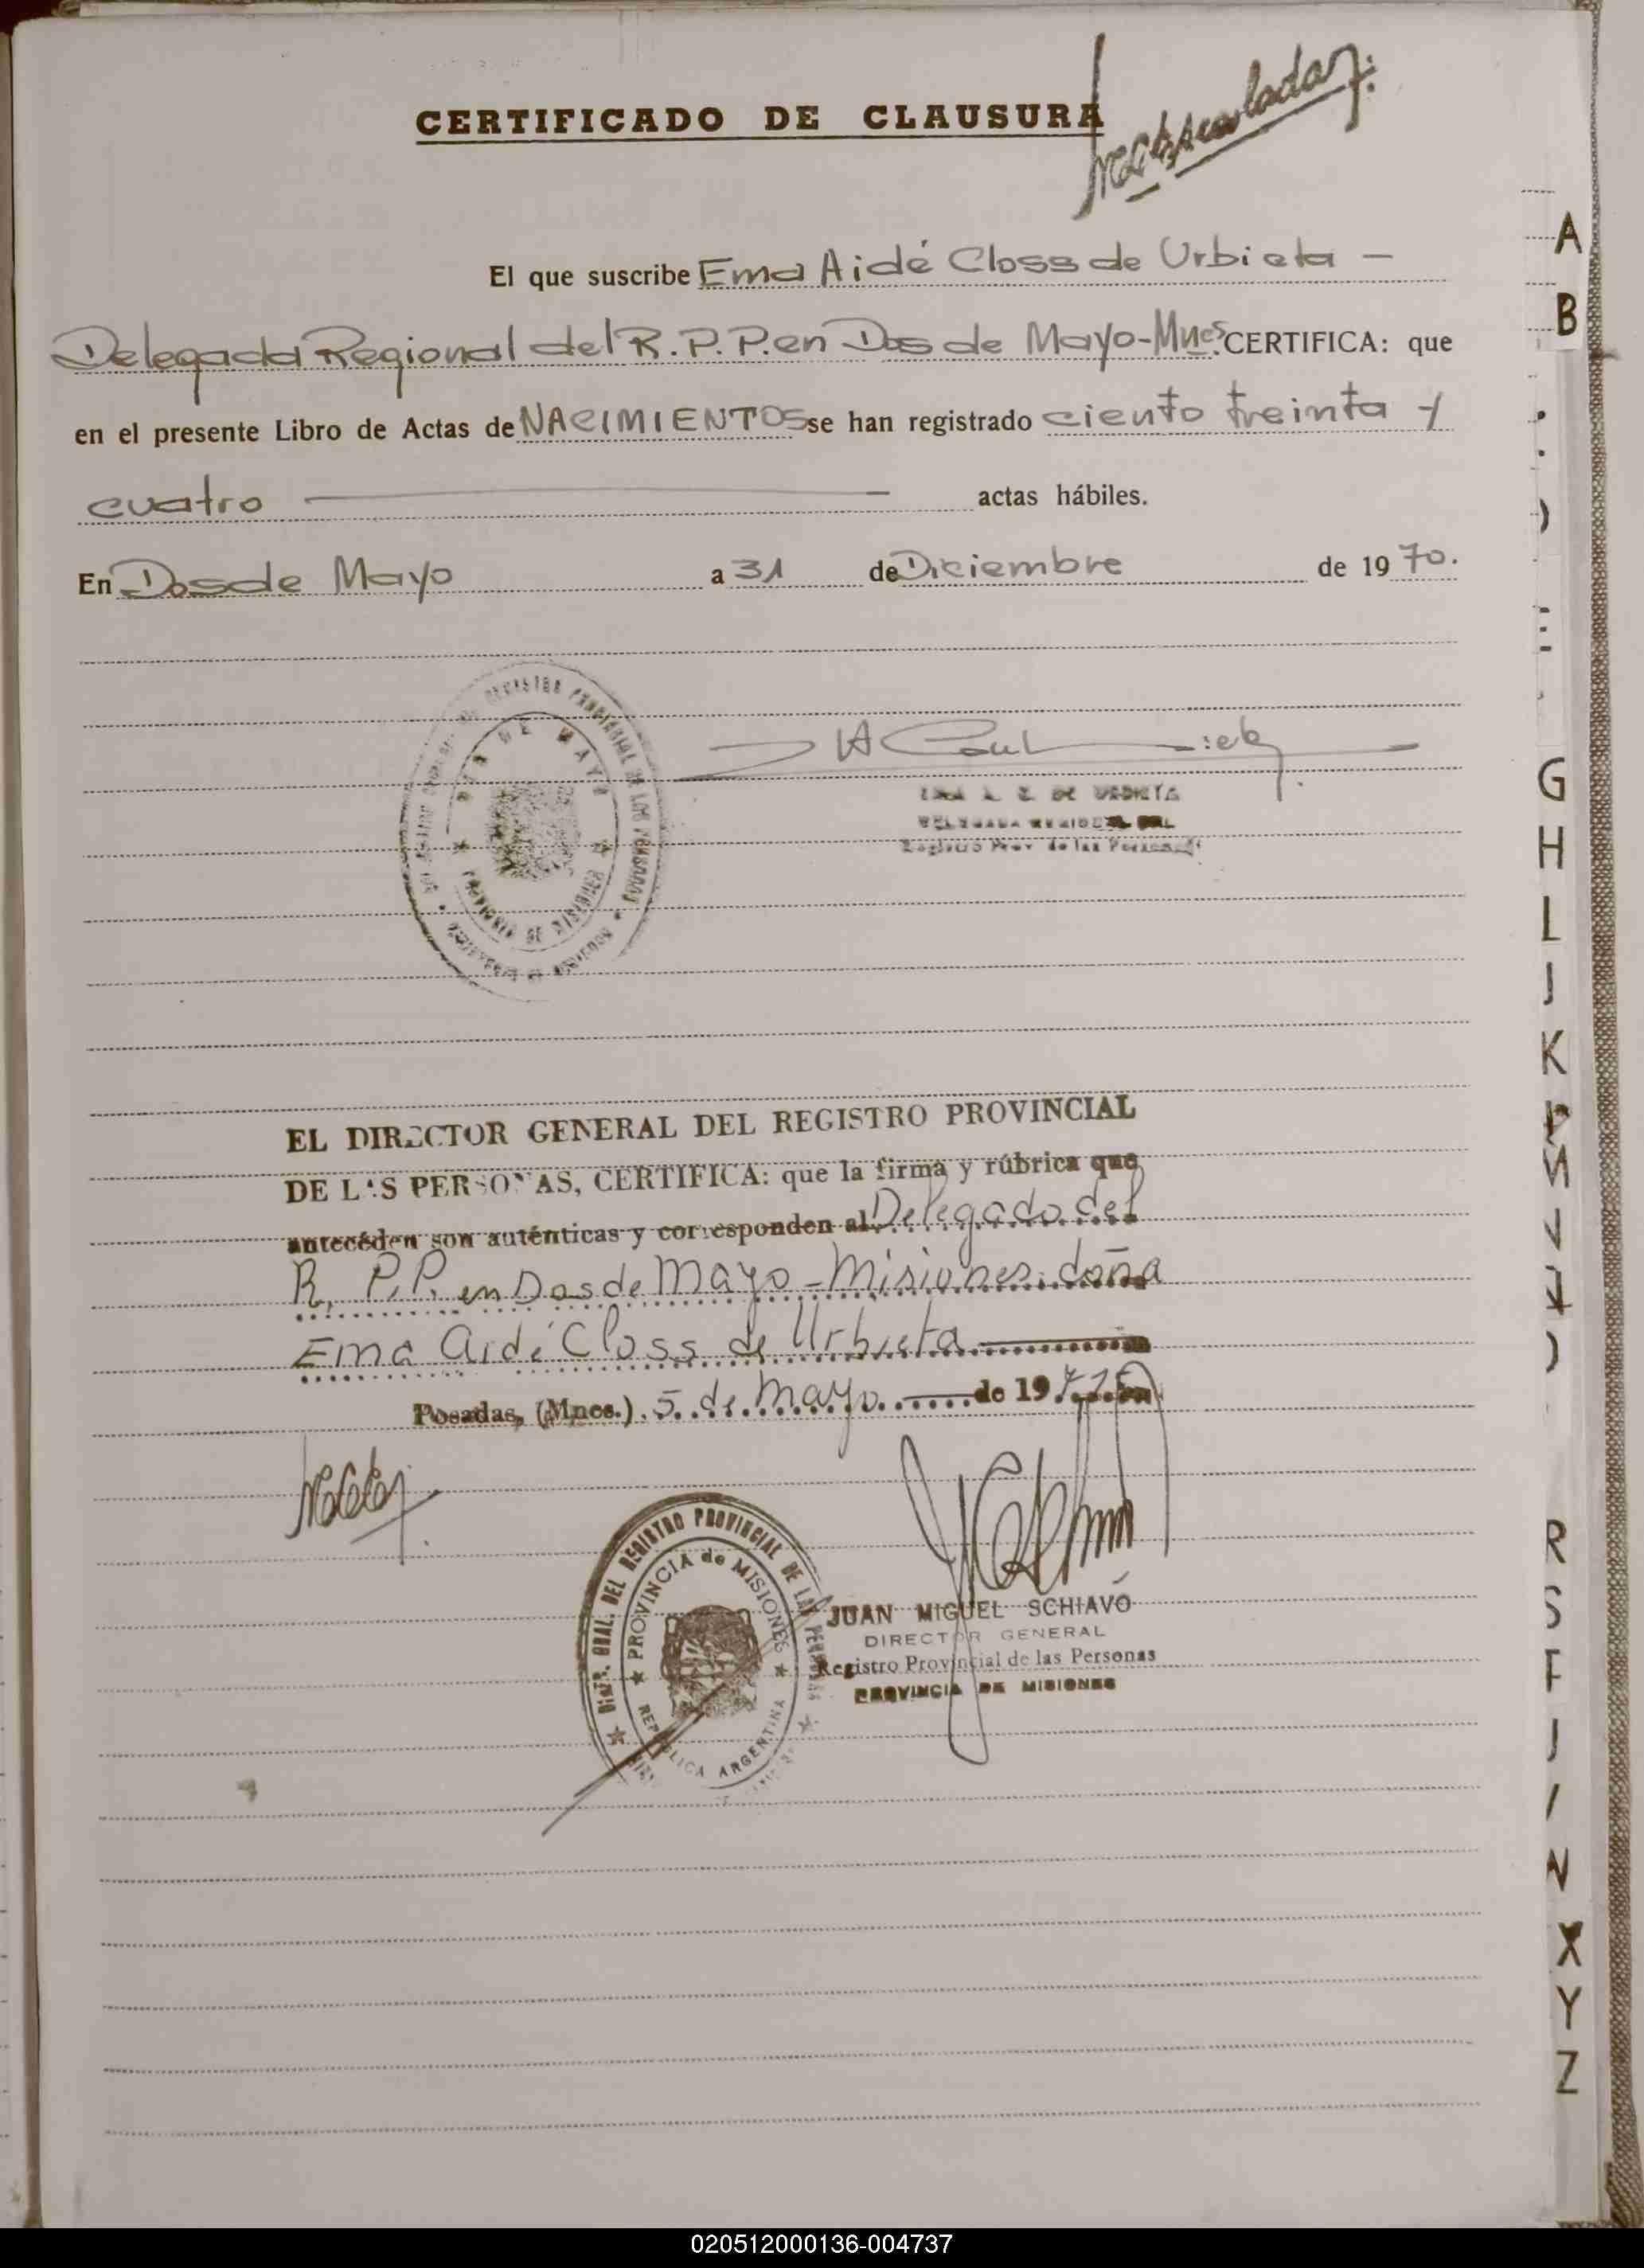 CERTIFICADO DE CLAUSURA
El que suscribe Ema Aidé Closs de Urbieta -
Delegada Regional del R.P.P. en Dos de Mayo-Mnes. CERTIFICA: que
en el presente Libro de Actas de NACIMIENTOS se han registrado ciento treinta y
cuatro actas hábiles.
En Dos de Mayo a 31 de Diciembre de 1970.
DOS DE MAYO
PROVINCIA DE MISIONES
DE URBIETA
DELEGADA REGIONAL DEL
Registro Prov. de las Personas
EL DIRECTOR GENERAL DEL REGISTRO PROVINCIAL
DE LAS PERSONAS, CERTIFICA: que la firma y rúbrica que
anteceden son auténticas y corresponden al Delegado del
R. P.P. en Dos de Mayo - Misiones. doña
Ema Aidé Closs de Urbieta
Posadas, (Mnes.) 5 de mayo de 1971
DIREC. GRAL. DEL REGISTRO PROVINCIAL DE LAS PERSONAS
PROVINCIA de MISIONES
REPUBLICA ARGENTINA
JUAN MIGUEL SCHIAVO
DIRECTOR GENERAL
Registro Provincial de las Personas
PROVINCIA DE MISIONES
A
B
G
H
L
J
K
R
S
X
Y
Z
020512000136-004737